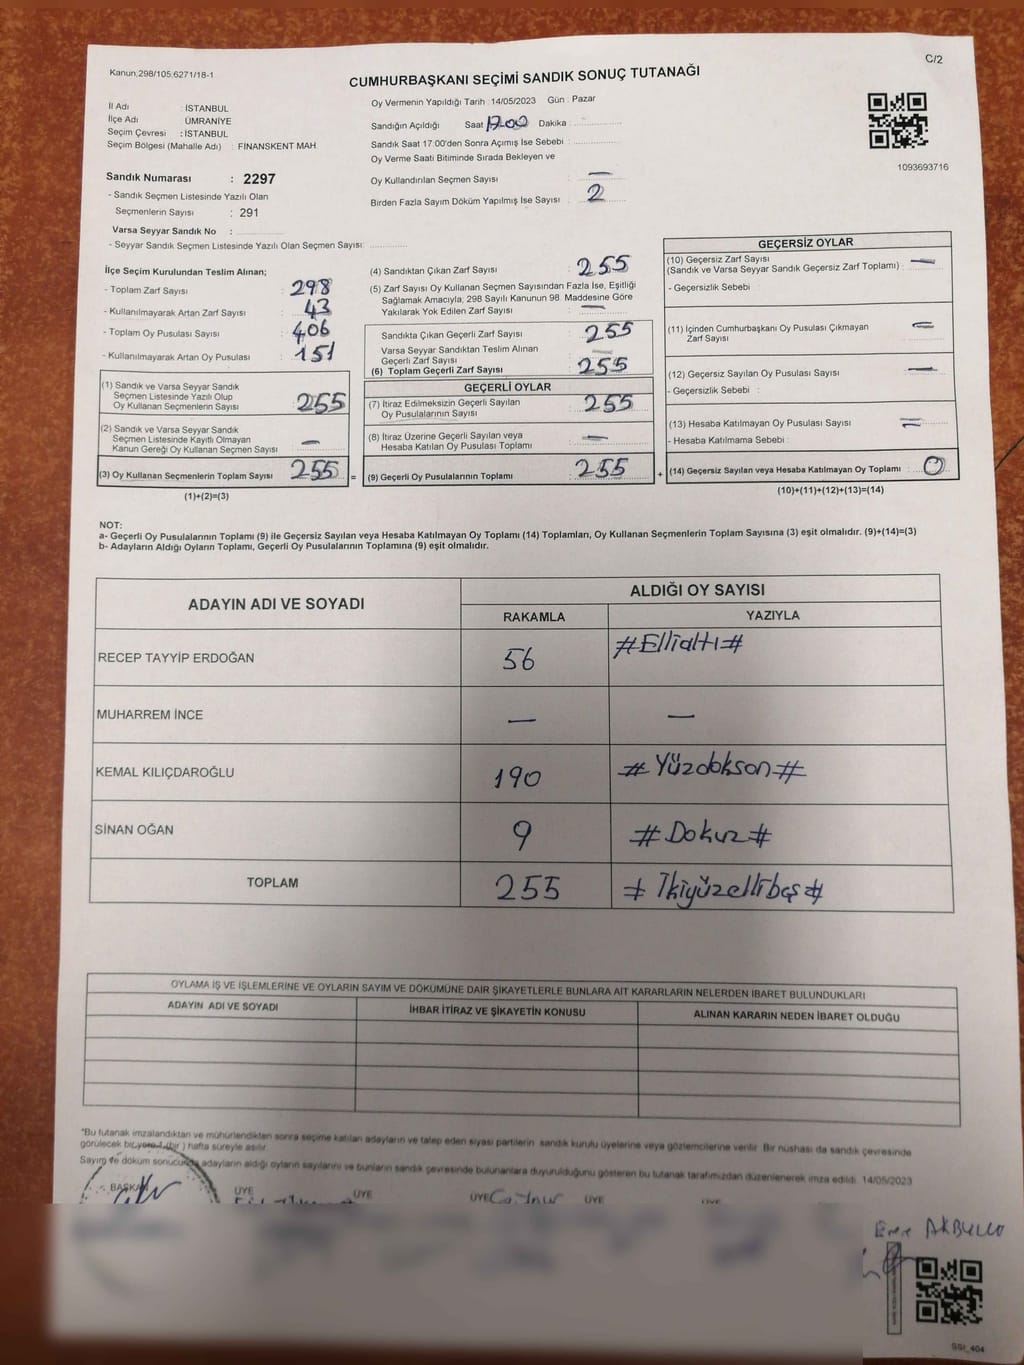 Kanun;298/105;6271/18-1
C/2
CUMHURBAŞKANI SEÇİMİ SANDIK SONUÇ TUTANAĞI
İl Adı : İSTANBUL
İlçe Adı : ÜMRANİYE
Seçim Çevresi : İSTANBUL
Seçim Bölgesi (Mahalle Adı) : FİNANSKENT MAH.
Oy Vermenin Yapıldığı Tarih : 14/05/2023 Gün : Pazar
Sandığın Açıldığı Saat 17.00 Dakika :
Sandık Saat 17:00'den Sonra Açımış İse Sebebi :
Oy Verme Saati Bitiminde Sırada Bekleyen ve
Oy Kullandırılan Seçmen Sayısı : —
Birden Fazla Sayım Döküm Yapılmış İse Sayısı : 2
1093693716
Sandık Numarası : 2297
- Sandık Seçmen Listesinde Yazılı Olan
Seçmenlerin Sayısı : 291
Varsa Seyyar Sandık No :
- Seyyar Sandık Seçmen Listesinde Yazılı Olan Seçmen Sayısı:
İlçe Seçim Kurulundan Teslim Alınan;
- Toplam Zarf Sayısı : 298
- Kullanılmayarak Artan Zarf Sayısı : 43
- Toplam Oy Pusulası Sayısı : 406
- Kullanılmayarak Artan Oy Pusulası : 151
(1) Sandık ve Varsa Seyyar Sandık
Seçmen Listesinde Yazılı Olup
Oy Kullanan Seçmenlerin Sayısı : 255
(2) Sandık ve Varsa Seyyar Sandık
Seçmen Listesinde Kayıtlı Olmayan
Kanun Gereği Oy Kullanan Seçmen Sayısı : —
(3) Oy Kullanan Seçmenlerin Toplam Sayısı : 255 =
(1)+(2)=(3)
(4) Sandıktan Çıkan Zarf Sayısı : 255
(5) Zarf Sayısı Oy Kullanan Seçmen Sayısından Fazla İse, Eşitliği
Sağlamak Amacıyla, 298 Sayılı Kanunun 98. Maddesine Göre
Yakılarak Yok Edilen Zarf Sayısı : —
Sandıkta Çıkan Geçerli Zarf Sayısı : 255
Varsa Seyyar Sandıktan Teslim Alınan
Geçerli Zarf Sayısı : —
(6) Toplam Geçerli Zarf Sayısı : 255
GEÇERLİ OYLAR
(7) İtiraz Edilmeksizin Geçerli Sayılan
Oy Pusulalarının Sayısı : 255
(8) İtiraz Üzerine Geçerli Sayılan veya
Hesaba Katılan Oy Pusulası Toplamı : —
(9) Geçerli Oy Pusulalarının Toplamı : 255 +
GEÇERSİZ OYLAR
(10) Geçersiz Zarf Sayısı
(Sandık ve Varsa Seyyar Sandık Geçersiz Zarf Toplamı) : —
- Geçersizlik Sebebi :
(11) İçinden Cumhurbaşkanı Oy Pusulası Çıkmayan
Zarf Sayısı : —
(12) Geçersiz Sayılan Oy Pusulası Sayısı : —
- Geçersizlik Sebebi :
(13) Hesaba Katılmayan Oy Pusulası Sayısı : —
- Hesaba Katılmama Sebebi :
(14) Geçersiz Sayılan veya Hesaba Katılmayan Oy Toplamı : 0
(10)+(11)+(12)+(13)=(14)
NOT:
a- Geçerli Oy Pusulalarının Toplamı (9) ile Geçersiz Sayılan veya Hesaba Katılmayan Oy Toplamı (14) Toplamları, Oy Kullanan Seçmenlerin Toplam Sayısına (3) eşit olmalıdır. (9)+(14)=(3)
b- Adayların Aldığı Oyların Toplamı, Geçerli Oy Pusulalarının Toplamına (9) eşit olmalıdır.
ADAYIN ADI VE SOYADI ALDIĞI OY SAYISI
RAKAMLA YAZIYLA
RECEP TAYYİP ERDOĞAN 56 #Ellialtı#
MUHARREM İNCE — —
KEMAL KILIÇDAROĞLU 190 #Yüzdokson#
SİNAN OĞAN 9 #Dokuz#
TOPLAM 255 #İkiyüzellibeş#
OYLAMA İŞ VE İŞLEMLERİNE VE OYLARIN SAYIM VE DÖKÜMÜNE DAİR ŞİKAYETLERLE BUNLARA AİT KARARLARIN NELERDEN İBARET BULUNDUKLARI
ADAYIN ADI VE SOYADI İHBAR İTİRAZ VE ŞİKAYETİN KONUSU ALINAN KARARIN NEDEN İBARET OLDUĞU
*Bu tutanak imzalandıktan ve mühürlendikten sonra seçime katılan adayların ve talep eden siyasi partilerin sandık kurulu üyelerine veya gözlemcilerine verilir. Bir nüshası da sandık çevresinde
görülecek bir yere 1 (bir) hafta süreyle asılır.
Sayım ve döküm sonucunda adayların aldığı oyların sayılarını ve bunların sandık çevresinde bulunanlara duyurulduğunu gösteren bu tutanak tarafımızdan düzenlenerek imza edildi. 14/05/2023
BAŞKAN ÜYE ÜYE ÜYE ÜYE ÜYE
Emre AKBULUT
SSI_404